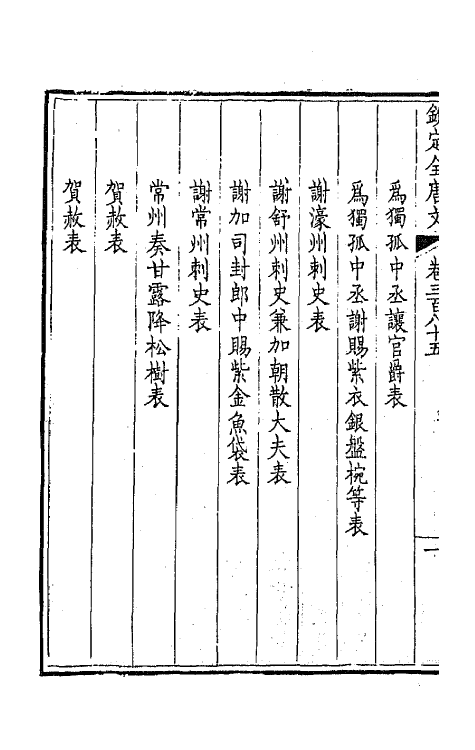 欽定全唐文 卷三百八十五 一
爲獨孤中丞讓官爵表
爲獨孤中丞謝賜紫衣銀盤椀等表
謝濠州刺史表
謝舒州刺史兼加朝散大夫表
謝加司封郎中賜紫金魚袋表
謝常州刺史表
常州奏甘露降松樹表
賀赦表
賀赦表